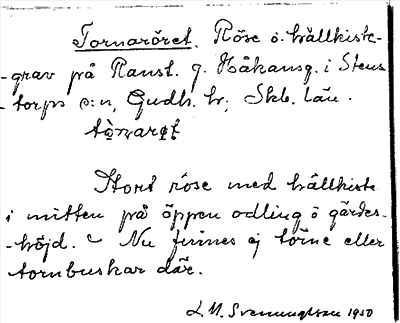 Tornaröret. Röse o. hällkiste-
-grav på Ranst. g. Håkansg. i Stens
-torps s:n, Gudh. hr, Skb. län.
Stort röse med hällkiste
i mitten på öppen odling ö gärdes-
-höjd. – Nu finnes ej törne eller
törnbuskar där.
L. M. Svenungsson 1950